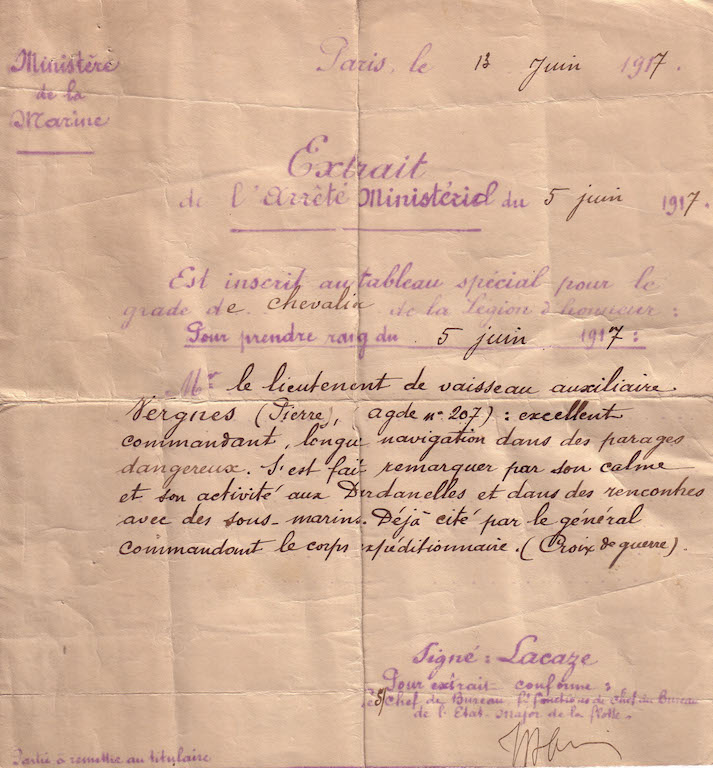 Ministère
de la
Marine
Paris, le 13 Juin 1917.
Extrait
de l'Arrêté Ministériel du 5 juin 1917.
Est inscrit au tableau spécial pour le
grade de chevalier de la Légion d'honneur :
Pour prendre rang du 5 juin 1917 :
Mr le lieutenent de vaisseau auxiliaire
Vergnes (Pierre, agde n° 207) : excellent
commandant, longue navigation dans des parages
dangereux. S'est fait remarquer par son calme
et son activité aux Dardanelles et dans des rencontres
avec des sous-marins. Déjà cité par le général
commandant le corps expéditionnaire. (Croix de guerre).
Signé : Lacaze
Pour extrait conforme :
Le S/ Chef de Bureau, ft fonctions de Chef du Bureau
de l'Etat-Major de la flotte.
Partie à remettre au titulaire